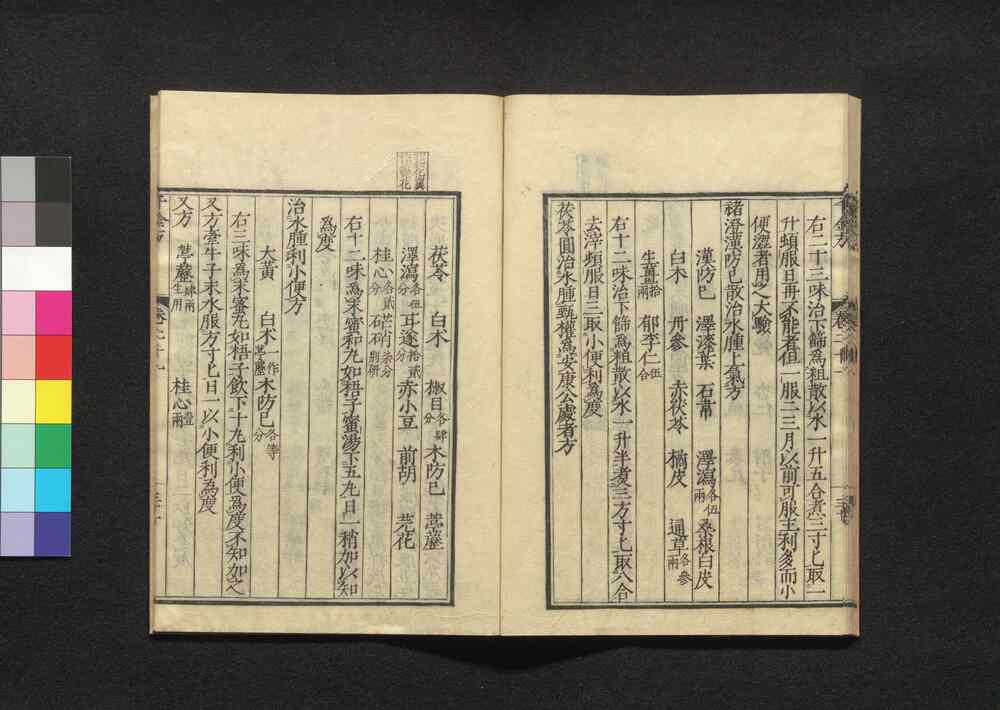 右二十三味治下篩爲粗散以水一升五合煮三寸匕取一
升頓服日再不能者但一服二三月以前可服主利多而小
便澀者用之大驗
褚澄漢防已散治水腫上氣方
漢防已 澤漆葉 石韋 澤瀉各伍兩 桑根白皮
白木 丹參 赤茯苓 橘皮 通草各參兩
生薑拾兩 郁李仁伍合
右十二味治下篩爲粗散以水一升半煮三方寸匕取八合
去滓頓服日三取小便利爲度
茯苓圓治水腫甄權爲安康公處者方
茯苓 白木 椒目各肆分 木防已 葶藶
澤瀉各伍分 甘遂拾貳分 赤小豆 前胡 芫花
桂心各貳分 芒硝柒分別研
右十二味爲末蜜和丸如梧子蜜湯下五丸日一稍加以知
爲度
治水腫利小便方
大黃 白木一作葶藶 木防已各等分
右三味爲末蜜丸如梧子飲下十丸利小便爲度不知加之
又方牽牛子末水服方寸匕日一以小便利爲度
又方 葶藶肆兩生用 桂心壹兩